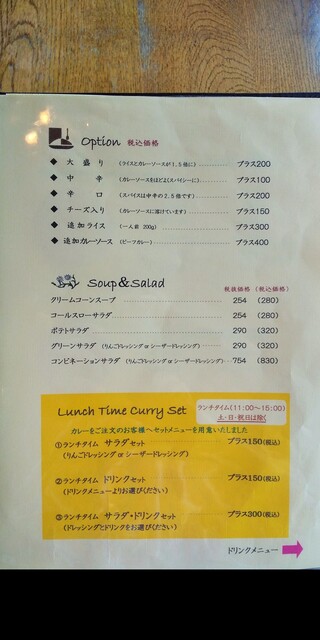 Option 税込価格
◆ 大盛り (ライスとカレーソースが1.5倍に) プラス200
◆ 中辛 (カレーソースをほどよくスパイシーに) プラス100
◆ 辛口 (スパイスは中辛の2.5倍です) プラス200
◆ チーズ入り (カレーソースに溶けています) プラス150
◆ 追加ライス (一人前 200g) プラス300
◆ 追加カレーソース (ビーフカレー) プラス400
Soup&Salad 税抜価格 (税込価格)
クリームコーンスープ 254 (280)
コールスローサラダ 254 (280)
ポテトサラダ 290 (320)
グリーンサラダ (りんごドレッシング or シーザードレッシング) 290 (320)
コンビネーションサラダ (りんごドレッシング or シーザードレッシング) 754 (830)
Lunch Time Curry Set ランチタイム(11:00~15:00)
土・日・祝日は除く
カレーをご注文のお客様へセットメニューを用意いたしました
①ランチタイム サラダセット プラス150(税込)
(りんごドレッシング or シーザードレッシング)
②ランチタイム ドリンクセット プラス150(税込)
(ドリンクメニューよりお選びください)
③ランチタイム サラダ・ドリンクセット プラス300(税込)
(ドレッシングとドリンクをお選びください)
ドリンクメニュー